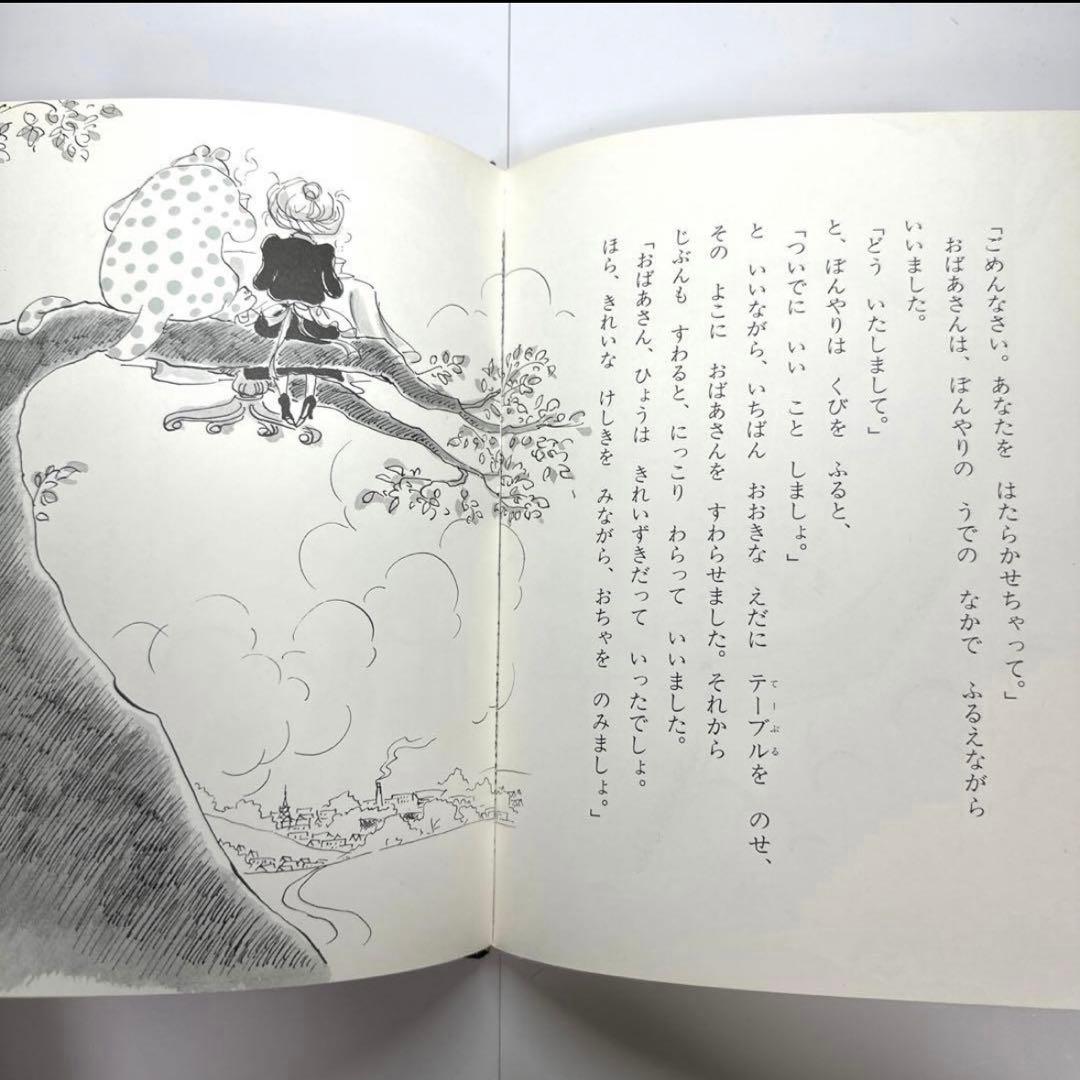 「ごめんなさい。あなたを　はたらかせちゃって。」
おばあさんは、ぼんやりの　うでの　なかで　ふるえながら
いいました。
「どう　いたしまして。」
と、ぼんやりは　くびを　ふると、
「ついでに　いい　こと　しましょ。」
と　いいながら、いちばん　おおきな　えだに　テーブルを　のせ、
てーぶる
その　よこに　おばあさんを　すわらせました。それから
じぶんも　すわると、にっこり　わらって　いいました。
「おばあさん、ひょうは　きれいずきだって　いったでしょ。
ほら、きれいな　けしきを　みながら、おちゃを　のみましょ。」